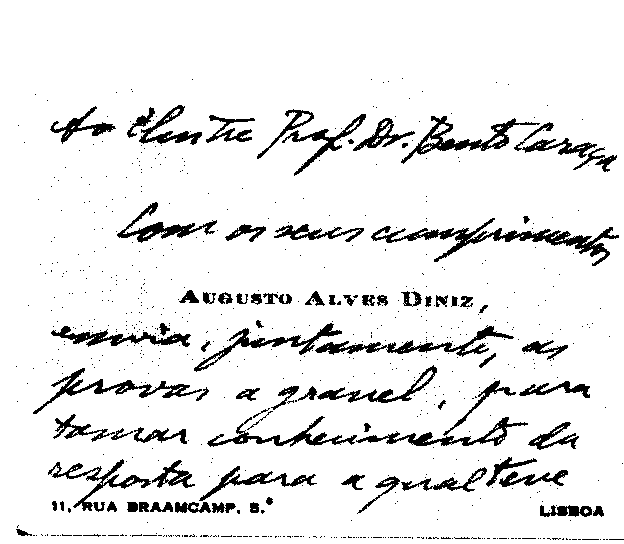 Ao Ilustre Prof. Dr. Bento Caraça
Com os seus cumprimentos
AUGUSTO ALVES DINIZ,
envia, juntamente, as
provas a granel, para
tomar conhecimento da
resposta para a qual teve
11, RUA BRAAMCAMP, 5.º LISBOA